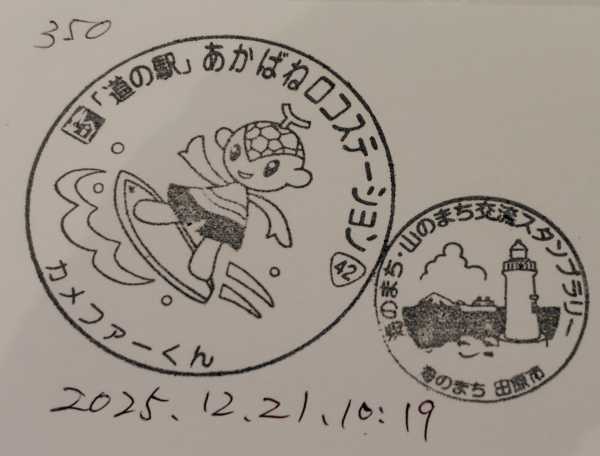 350
「道の駅」あかばねロコステーション
42
カメファーくん
海のまち・山のまち交流スタンプラリー
海のまち 田原市
2025.12.21.10:19